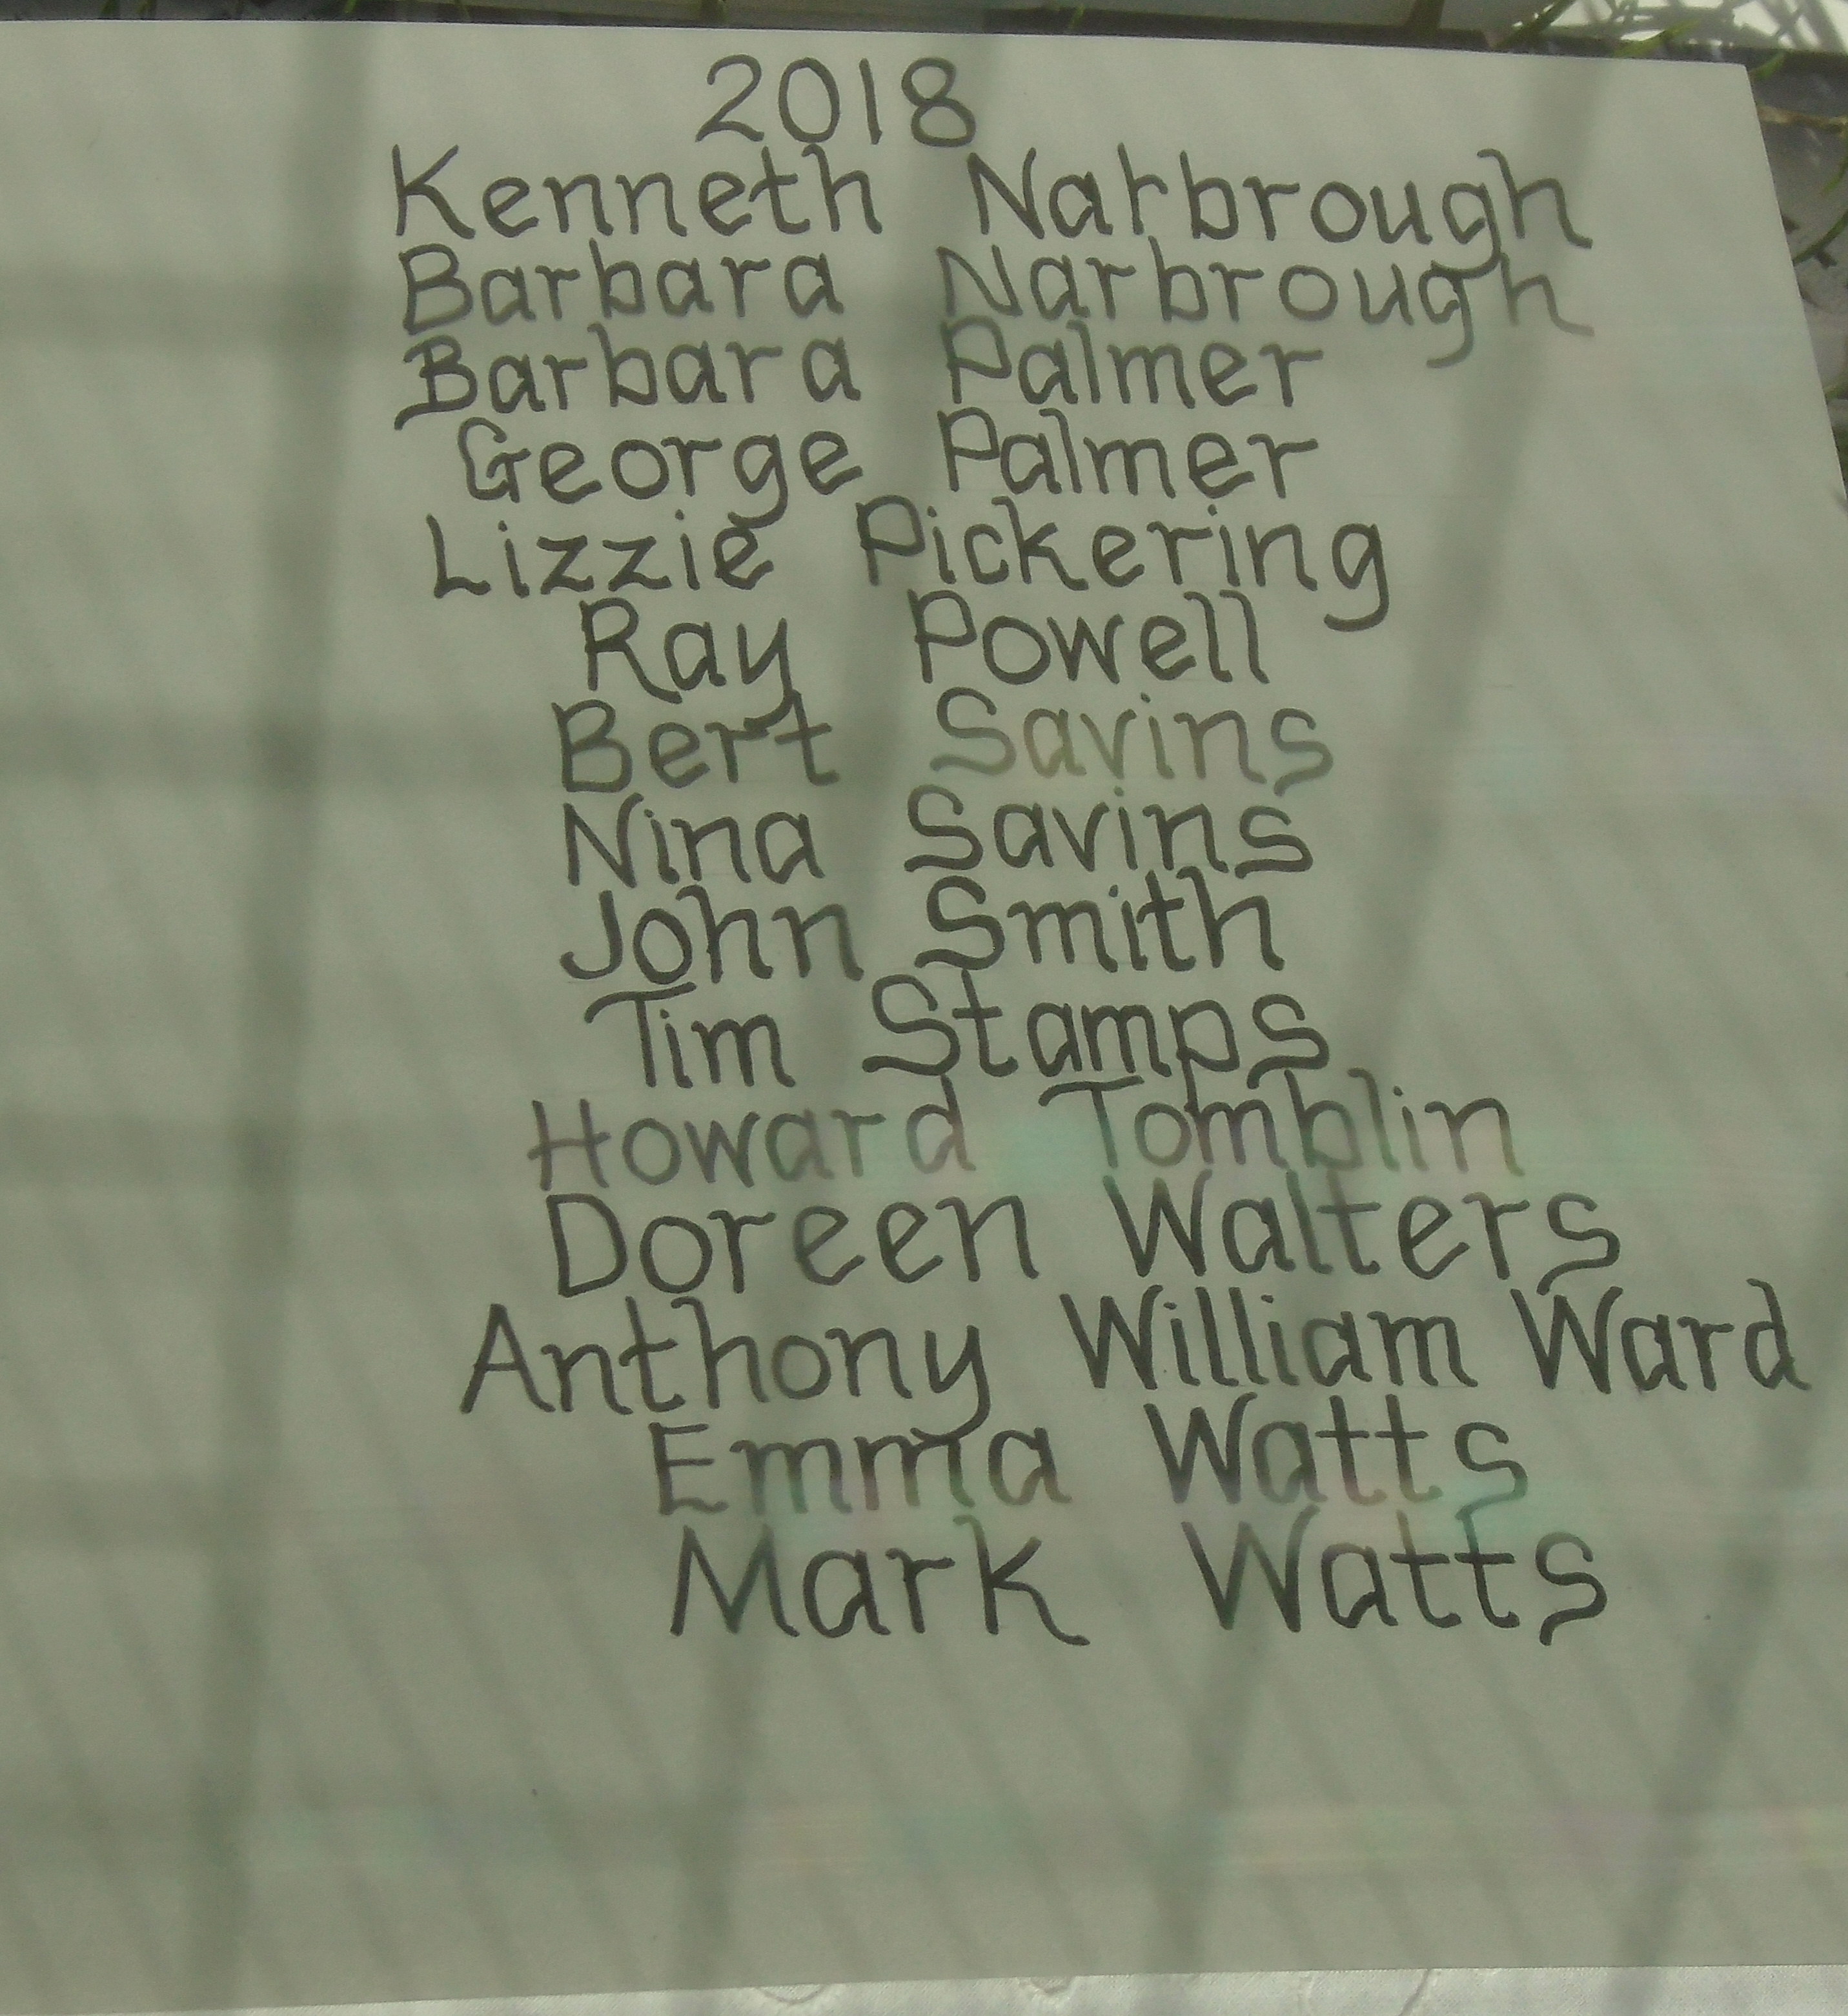 2018
Kenneth Narbrough
Barbara Narbrough
Barbara Palmer
George Palmer
Lizzie Pickering
Ray Powell
Bert Savins
Nina Savins
John Smith
Tim Stamps
Howard Tomblin
Doreen Walters
Anthony William Ward
Emma Watts
Mark Watts